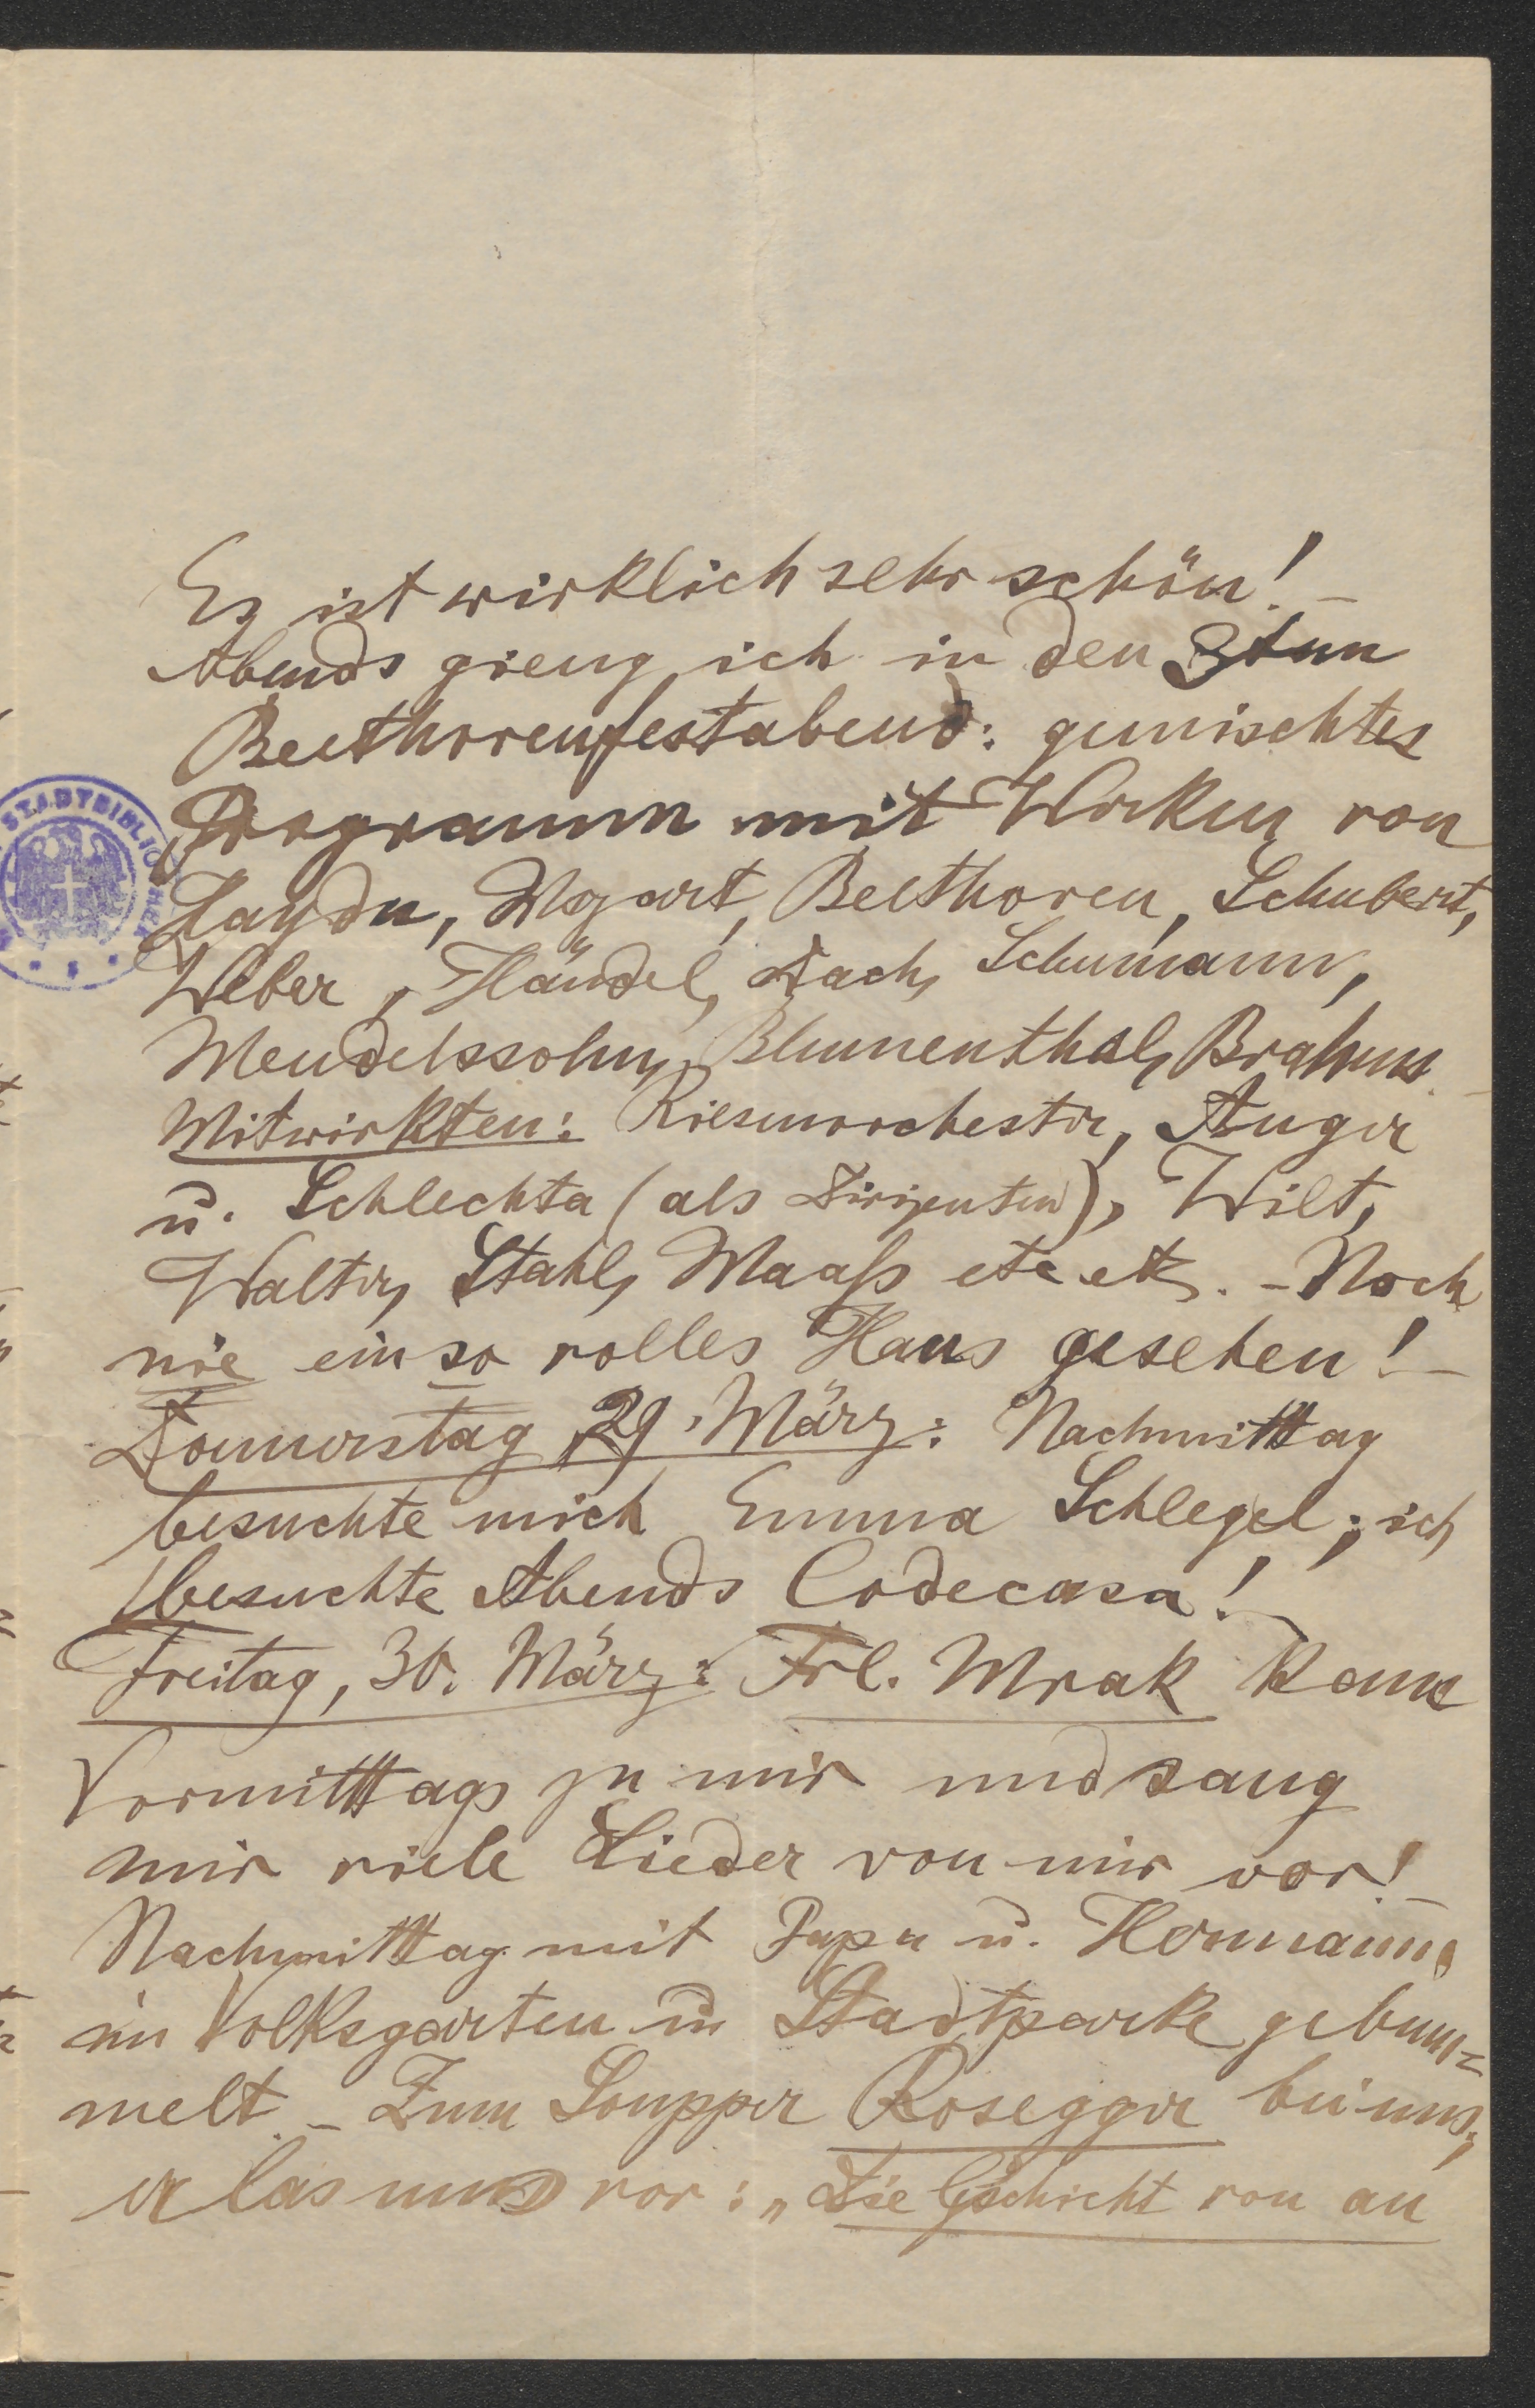 Es ist wirklich sehr schön! –
Abends gieng ich in den 3ten
Beethovenfestabend: gemischtes
Programm mit Werken von
Haydn, Mozart, Beethoven, Schubert,
Weber, Händel, Bach, Schumann,
Mendelssohn, Blumenthal, Brahms.
Mitwirkten: Riesenorchester,
u. Schlechta (als Dirigenten), Wilt,
Walter, Stahl, Maaß etc etc. – Noch
nie ein so volles Haus gesehen! –
Donnerstag 29. März: Nachmittag
besuchte mich Emma Schlegel; ich
besuchte Abends Codecasa! –
Freitag, 30. März: Frl. Mrak kam
Vormittags zu mir und sang
mir viele Lieder von mir vor! –
Nachmittag mit Papa u. Hermann
im Volksgarten u Stadtparke gebum=
melt. – Zum Soupper Rosegger bei uns;
er las uns vor: „Die Gschicht von an
STADTBIBLIOTHEK